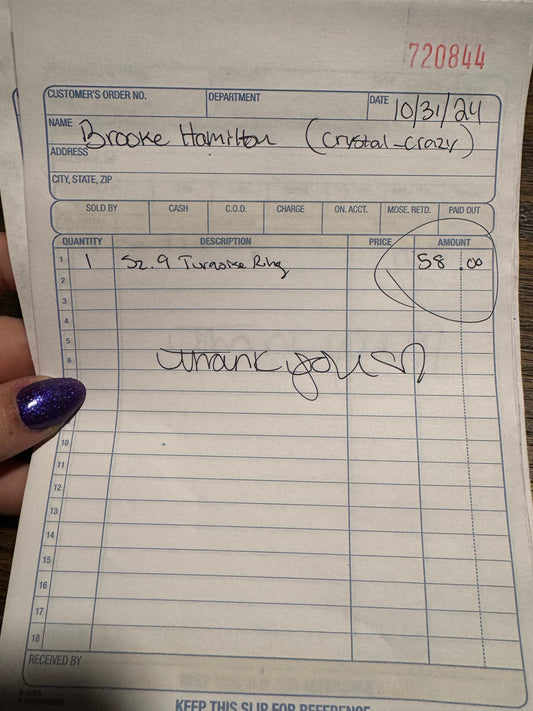 720844
CUSTOMER'S ORDER NO. DEPARTMENT DATE 10/31/24
NAME Brooke Hamilton (crystal-crazy)
ADDRESS
CITY, STATE, ZIP
SOLD BY CASH C.O.D. CHARGE ON. ACCT. MDSE. RETD. PAID OUT
QUANTITY DESCRIPTION PRICE AMOUNT
1 1 Sz. 9 Turqoise Ring 58 .00
2
3
4
5
6 Thank you ♡
10
11
12
13
14
15
16
17
18
RECEIVED BY
KEEP THIS SLIP FOR REFERENCE